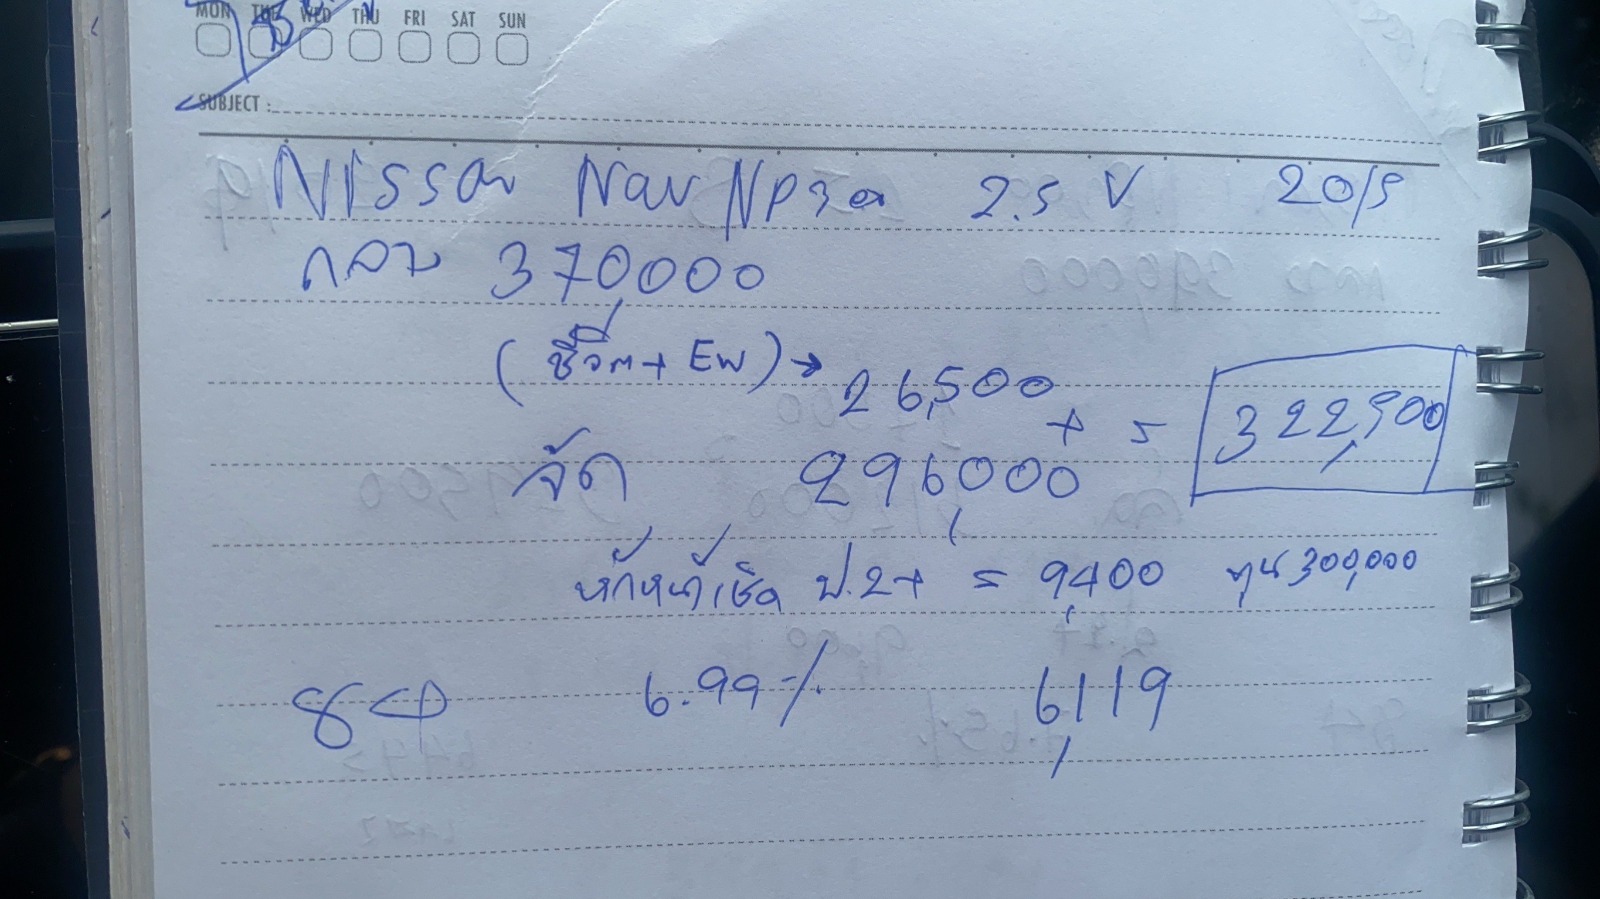 MON TUE WED THU FRI SAT SUN
SUBJECT :
Nissan Nav NP300 2.5 V 2015
กลาง 370,000
(ชีวิต + EW) → 26,500
+ = 322,500
จัด 296,000
หักหน้าเช็ค ป.2+ = 9,400 ทุน 300,000
84 6.99% 6,119